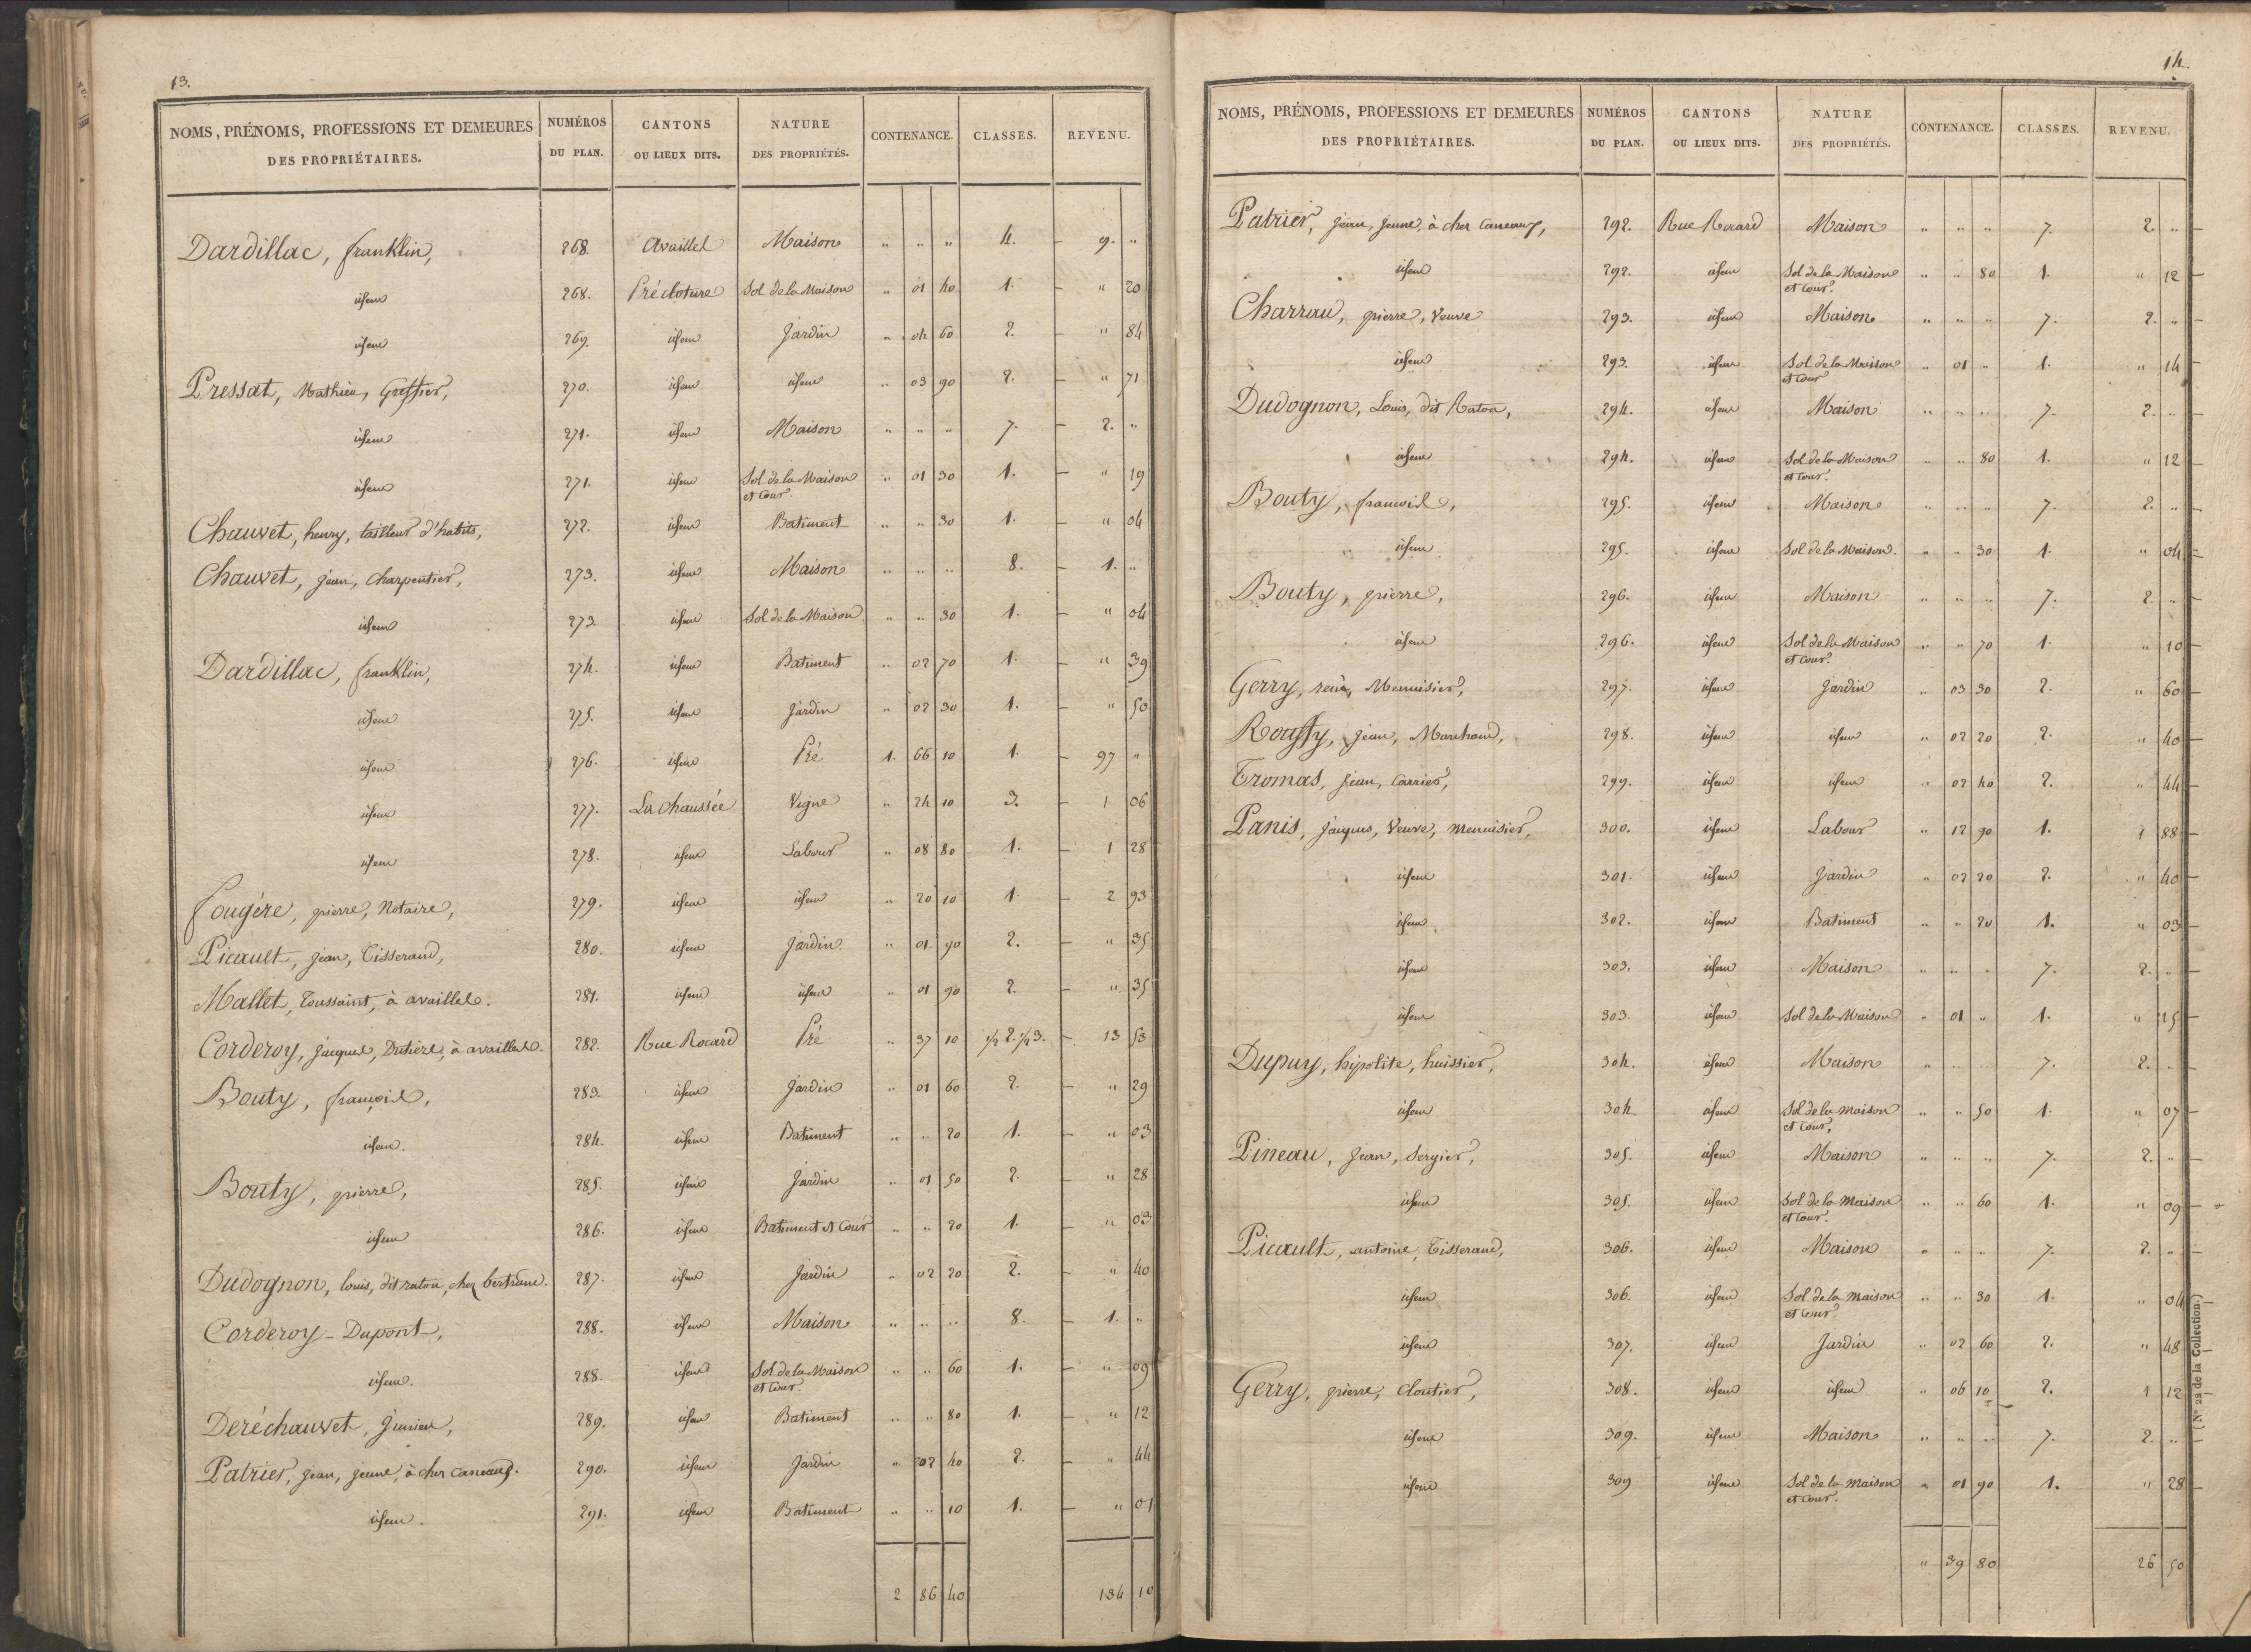 13.
NOMS, PRÉNOMS, PROFESSIONS ET DEMEURES DES PROPRIÉTAIRES. NUMÉROS DU PLAN. CANTONS OU LIEUX DITS. NATURE DES PROPRIÉTÉS. CONTENANCE. CLASSES. REVENU.
Dardillac, franklin, 268. Availlet Maison " " " 4. - 9. "
idem 268. Pré cloture Sol de la Maison " 01 40 1. - " 20
idem 269. idem Jardin " 04 60 2. - " 84
Pressat, Mathieu, Greffier, 270. idem idem " 03 90 2. - " 71
idem 271. idem Maison " " " 7. - 2. "
idem 271. idem Sol de la Maison et Cour. " 01 30 1. - " 19
Chauvet, henry, tailleur d'habits, 272. idem Batiment " " 30 1. - " 04
Chauvet, jean, charpentier, 273. idem Maison " " " 8. - 1. "
idem 273. idem Sol de la Maison " " 30 1. - " 04
Dardillac, franklin, 274. idem Batiment " 02 70 1. - " 39
idem 275. idem Jardin " 02 30 1. - " 50
idem 276. idem Pré 1. 66 10 1. - 97 "
idem 277. La chaussée Vigne " 24 10 3. - 1 06
idem 278. idem Labour " 08 80 1. - 1 28
fougère, pierre, Notaire, 279. idem idem " 20 10 1. - 2 93
Picault, jean, Tisserand, 280. idem Jardin " 01 90 2. - " 35
Mallet, Toussaint, à availlet. 281. idem idem " 01 90 2. - " 35
Corderoy, jacques, Dutière, à availlet. 282. Rue Rocard Pré " 37 10 1/2 2. 1/2 3. - 13 53
Bouty, françois, 283. idem Jardin " 01 60 2. - " 29
idem. 284. idem Batiment " " 20 1. - " 03
Bouty, pierre, 285. idem Jardin " 01 50 2. - " 28
idem 286. idem Batiment et Cour " " 20 1. - " 03
Dudognon, louis, dit raton, chez bertrand. 287. idem Jardin " 02 20 2. - " 40
Corderoy-Dupont, 288. idem Maison " " " 8. - 1. "
idem. 288. idem Sol de la Maison et Cour. " " 60 1. - " 09
Deréchauvet, junien, 289. idem Batiment " " 80 1. - " 12
Patrier, jean, jeune, à chez Caneaux. 290. idem Jardin " 02 40 2. - " 44
idem. 291. idem Batiment " " 10 1. - " 01
2 86 40 134 10
14.
NOMS, PRÉNOMS, PROFESSIONS ET DEMEURES DES PROPRIÉTAIRES. NUMÉROS DU PLAN. CANTONS OU LIEUX DITS. NATURE DES PROPRIÉTÉS. CONTENANCE. CLASSES. REVENU.
Patrier, jean, jeune, à chez Caneaux, 292. Rue Rocard Maison " " " 7. 2. "
idem 292. idem Sol de la Maison et Cour. " " 80 1. " 12
Charrau, pierre, Veuve 293. idem Maison " " " 7. 2. "
idem 293. idem Sol de la Maison et Cour " 01 " 1. " 14
Dudognon, Louis, dit Raton, 294. idem Maison " " " 7. 2. "
idem 294. idem Sol de la Maison et Cour. " " 80 1. " 12
Bouty, francois, 295. idem Maison " " " 7. 2. "
idem 295. idem Sol de la Maison. " " 30 1. " 04
Bouty, pierre, 296. idem Maison " " " 7. 2. "
idem 296. idem Sol de la Maison et Cour. " " 70 1. " 10
Gerry, Menuisier, 297. idem Jardin " 03 30 2. " 60
Rouffy, jean, Marchand, 298. idem idem " 02 20 2. " 40
Tromas, jean, Carrier, 299. idem idem " 02 40 2. " 44
Panis, jacques, Veuve, menuisier, 300. idem Labour " 12 90 1. 1 88
idem 301. idem Jardin " 02 20 2. " 40
idem 302. idem Batiment " " 20 1. " 03
idem 303. idem Maison " " " 7. 2. "
idem 303. idem Sol de la Maison " 01 " 1. " 15
Dupuy, hipolite, huissier, 304. idem Maison " " " 7. 2. "
idem 304. idem Sol de la maison et Cour, " " 50 1. " 07
Pineau, jean, Sergier, 305. idem Maison " " " 7. 2. "
idem 305. idem Sol de la maison et Cour. " " 60 1. " 09
Picault, antoine, Tisserand, 306. idem Maison " " " 7. 2. "
idem 306. idem Sol de la maison et Cour. " " 30 1. " 04
idem 307. idem Jardin " 02 60 2. " 48
Gerry, pierre, Cloutier, 308. idem idem " 06 10 2. 1 12
idem 309. idem Maison " " " 7. 2. "
idem 309 idem Sol de la maison et Cour. " 01 90 1. " 28
" 39 80 26 50
(N° 22 de la Collection.)